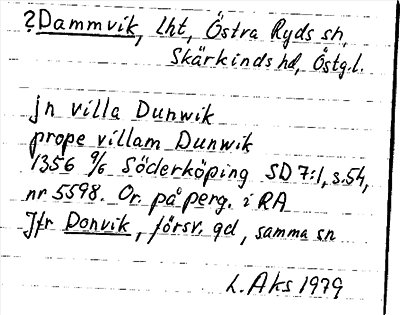 ?Dammvik, lht, Östra Ryds sn,
Skärkinds hd, Östg.l.
jn villa Dunwik
prope villam Dunwik
1356 9/6 Söderköping SD 7:1, s.54,
nr 5598. Or. på perg. i RA
Jfr Donvik, försv. gd, samma sn
L. Aks 1979